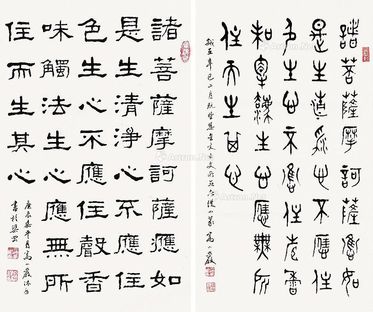 諸菩薩摩訶薩應如
是生清淨心不應住
色生心不應住聲香
味觸法生心應無所
住而生其心
諸菩薩摩訶薩應如
是生清淨心不應住
色生心不應住聲香
味觸法生心應無所
住而生其心